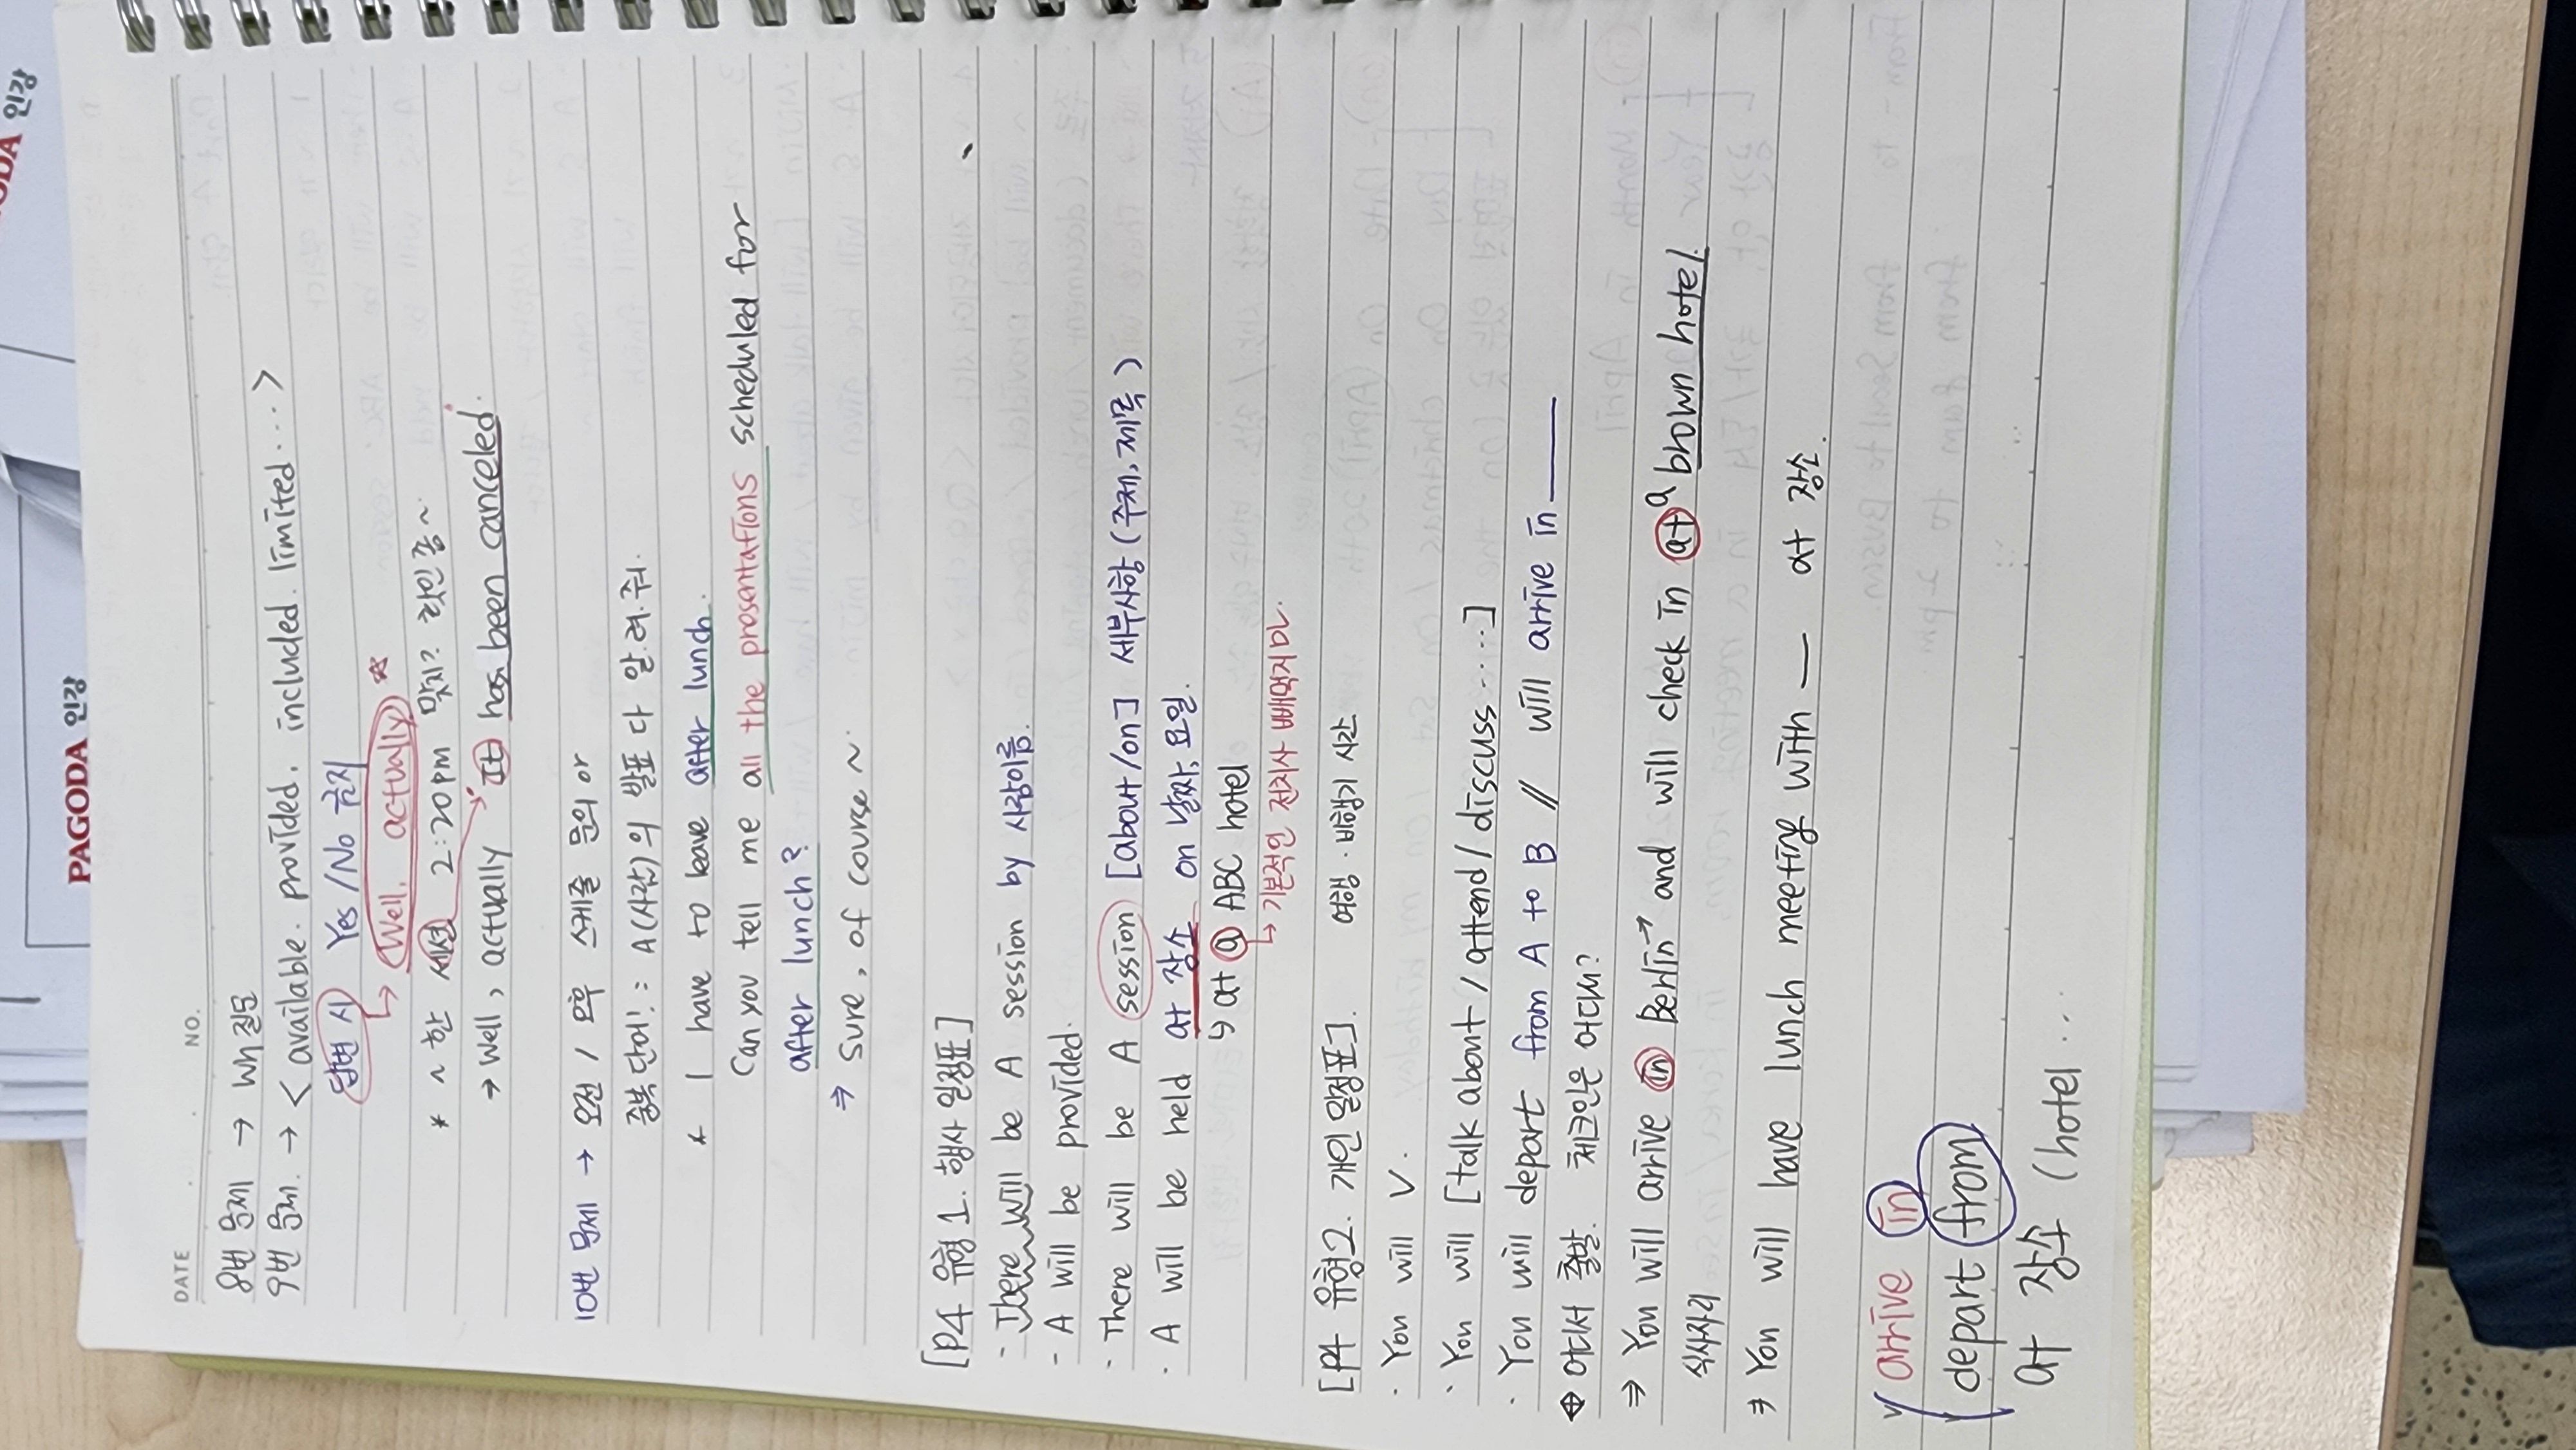 PAGODA 인강
PAGODA 인강
DATE
NO.
8번 문제 → Wh 질문
9번 문제. → < available. provided. included. limited.... >
답변 시 Yes / No 금지
↳ Well, actually ☆
* ~ 한 세션 2:20pm 맞지? 확인 좀 ~
→ Well, actually It has been canceled.
10번 문제 → 오전 / 오후 스케줄 문의 or
중복 단어! : A(시간)의 발표 다 알.려.줘.
* I have to leave after lunch.
Can you tell me all the presentations scheduled for
after lunch?
⇒ Sure, of course ~
[P4 유형 1. 행사 일정표]
- There will be A session by 사람이름.
- A will be provided.
· There will be A session [about/on] 세부사항 (주제, 제목)
· A will be held at 장소 on 날짜, 요일.
↳ at a ABC hotel
↳ 기본적인 전치사 빼먹지 마.
[P4 유형2. 개인 일정표]. 여행 · 비행기 시간
· You will V.
· You will [talk about / attend / discuss .....]
· You will depart from A to B // will arrive in ____
⇔ 어디서 출발. 체크인은 어디서?
⇒ You will arrive in Berlin → and will check in at a brown hotel.
식사자리
⇒ You will have lunch meeting with — at 장소.
arrive in
depart from
at 장소 (hotel ...